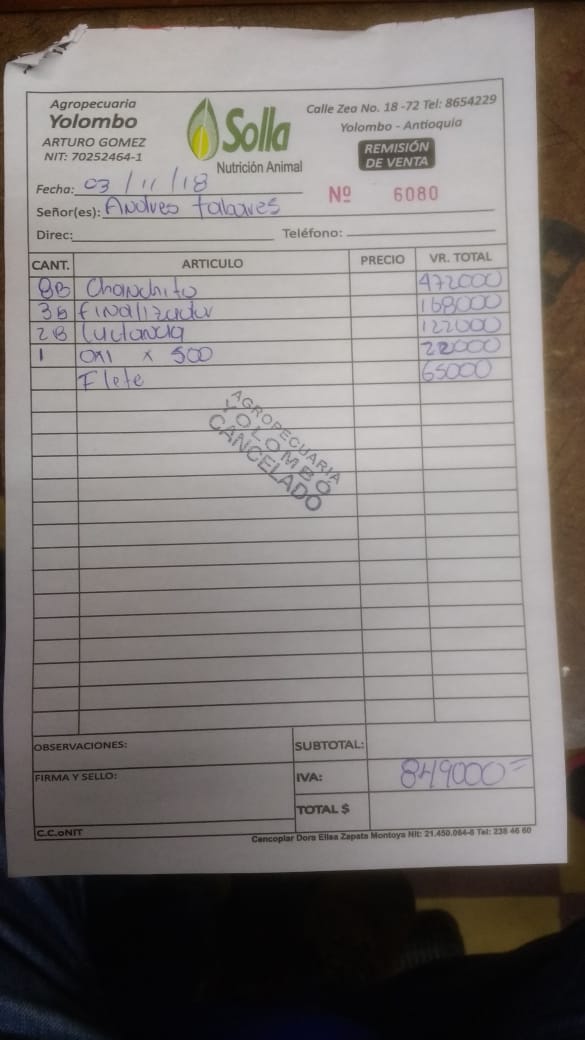 Agropecuaria
Yolombo
ARTURO GOMEZ
NIT: 70252464-1
Solla
Nutrición Animal
Calle Zea No. 18 -72 Tel: 8654229
Yolombo - Antioquia
REMISIÓN
DE VENTA
Fecha: 03/11/18
Nº 6080
Señor(es): Andres tabares
Direc: Teléfono:
CANT. ARTICULO PRECIO VR. TOTAL
8B Chanchito 472000
3B finalizador 168000
2B Lactancia 122000
1 oxi x 500 22000
Flete 65000
AGROPECUARIA
YOLOMBO
CANCELADO
OBSERVACIONES:
SUBTOTAL:
FIRMA Y SELLO:
IVA: 849000=
TOTAL $
C.C.oNIT
Cencoplar Dora Elisa Zapata Montoya Nit: 21.450.064-6 Tel: 238 46 60